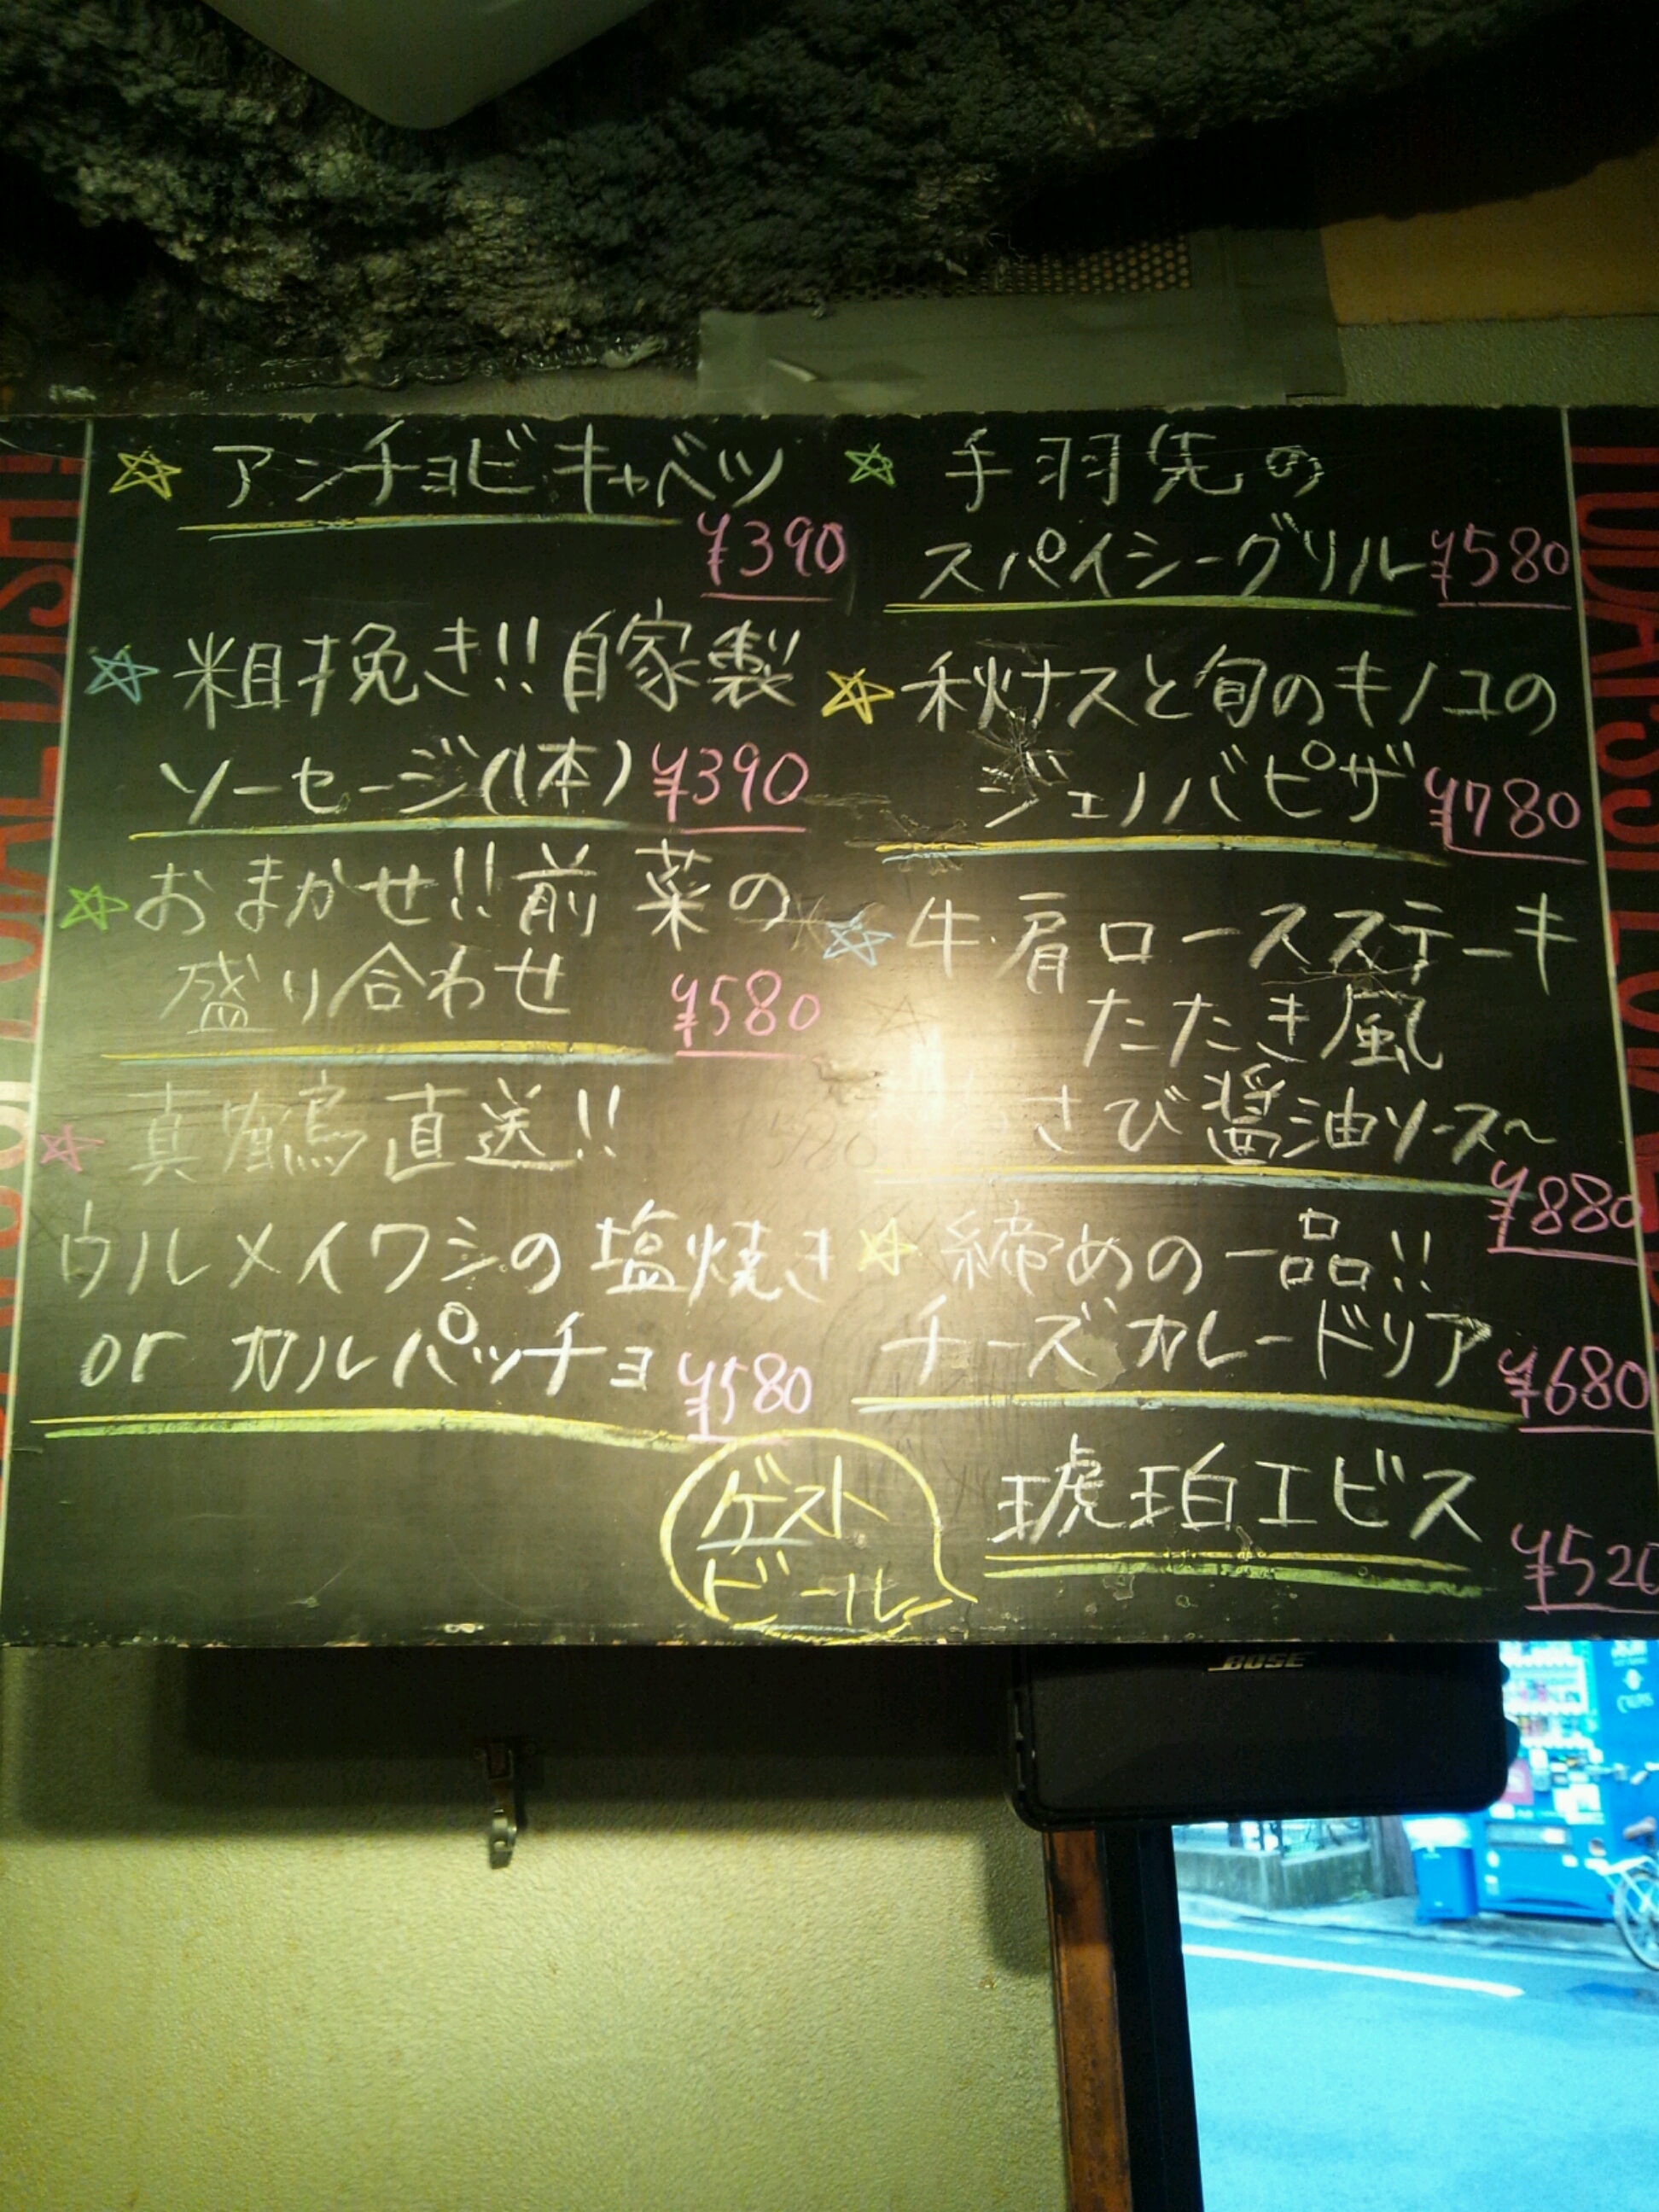 アンチョビキャベツ
¥390
粗挽き!!自家製
ソーセージ(1本) ¥390
おまかせ!!前菜の
盛り合わせ ¥580
真鶴直送!!
ウルメイワシの塩焼き
or カルパッチョ ¥580
手羽先の
スパイシーグリル ¥580
秋ナスと旬のキノコの
ジェノバピザ ¥780
牛肩ロースステーキ
たたき風
さび醤油ソース〜
¥880
締めの一品!!
チーズカレードリア ¥680
ゲスト
ビール
琥珀エビス
¥520
BOSE